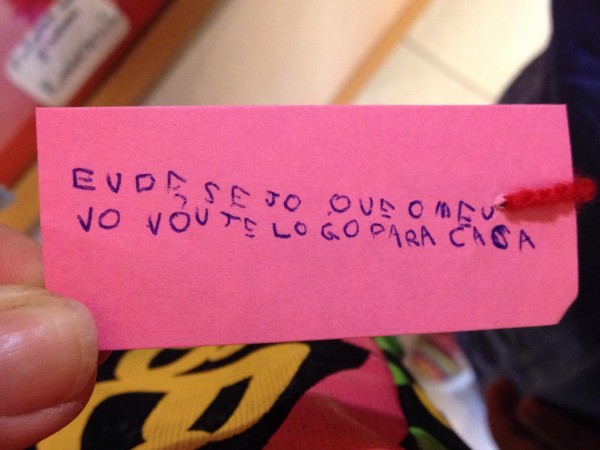 EU DESEJO QUE O MEU
VO VOUTE LOGO PARA CASA